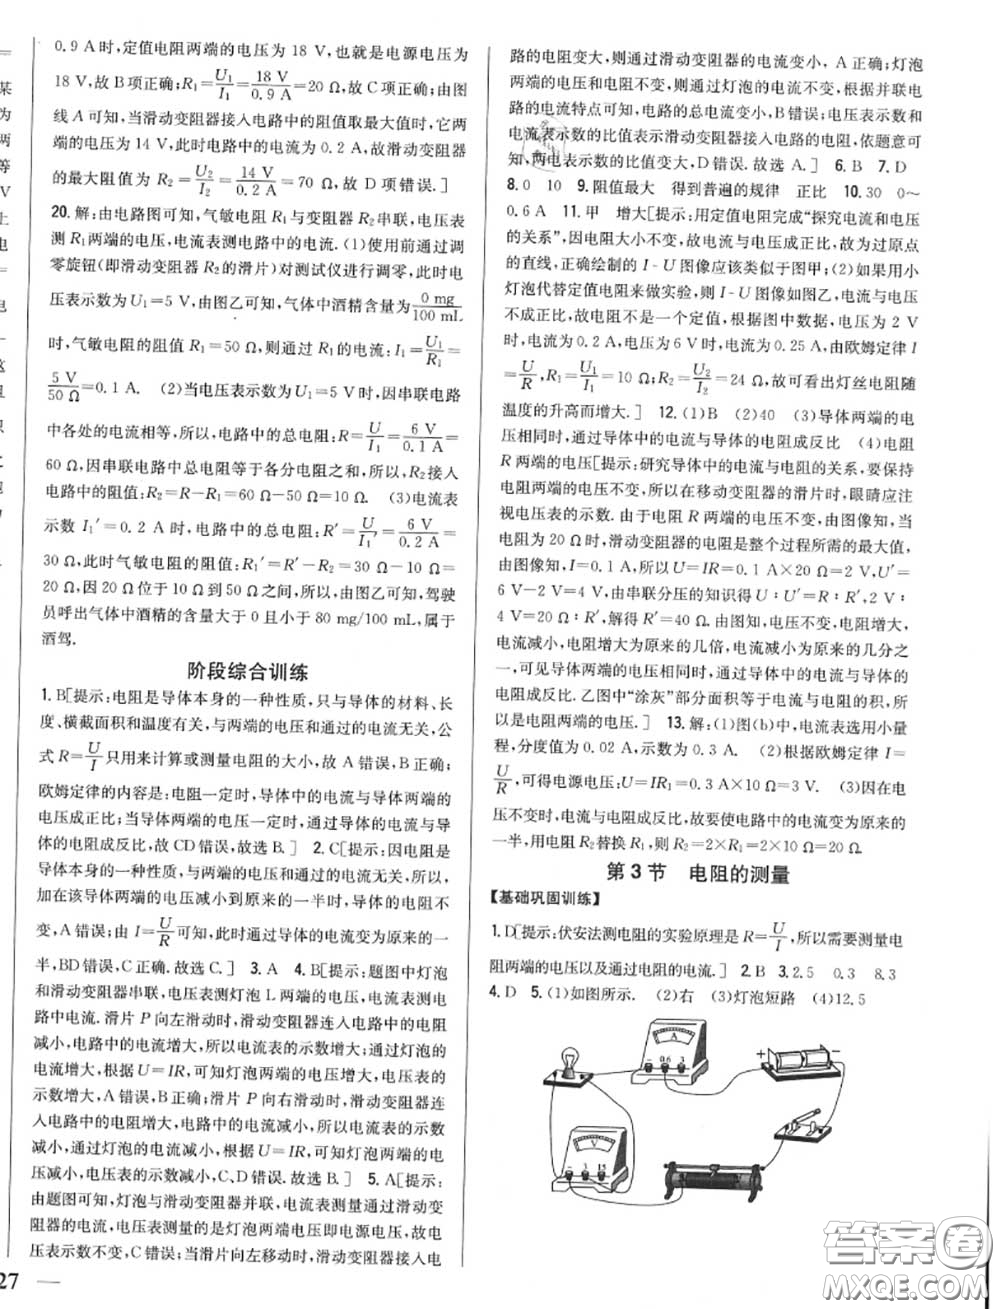 0.9 A时,定值电阻两端的电压为 18 V,也就是电源电压为
18 V,故 B 项正确;R₁=U₁/I₁=18 V/0.9 A=20 Ω,故 C 项正确;由图
线 A 可知,当滑动变阻器接入电路中的阻值取最大值时,它两
端的电压为 14 V,此时电路中的电流为 0.2 A,故滑动变阻器
的最大阻值为 R₂=U₂/I₂=14 V/0.2 A=70 Ω,故 D 项错误.]
20.解:由电路图可知,气敏电阻 R₁与变阻器 R₂串联,电压表
测 R₁两端的电压,电流表测电路中的电流.(1)使用前通过调
零旋钮(即滑动变阻器 R₂的滑片)对测试仪进行调零,此时电
压表示数为 U₁=5 V,由图乙可知,气体中酒精含量为0 mg/100 mL
时,气敏电阻的阻值 R₁=50 Ω,则通过 R₁的电流:I₁=U₁/R₁=
5 V/50 Ω=0.1 A. (2)当电压表示数为 U₁=5 V 时,因串联电路
中各处的电流相等,所以,电路中的总电阻:R=U/I=6 V/0.1 A=
60 Ω,因串联电路中总电阻等于各分电阻之和,所以,R₂接入
电路中的阻值:R₂=R-R₁=60 Ω-50 Ω=10 Ω. (3)电流表
示数 I₁′=0.2 A 时,电路中的总电阻:R′=U/I₁′=6 V/0.2 A=
30 Ω,此时气敏电阻的阻值:R₁′=R′-R₂=30 Ω-10 Ω=
20 Ω,因 20 Ω 位于 10 Ω到 50 Ω之间,所以,由图乙可知,驾驶
员呼出气体中酒精的含量大于 0 且小于 80 mg/100 mL,属于
酒驾.
阶段综合训练
1. B[提示:电阻是导体本身的一种性质,只与导体的材料、长
度、横截面积和温度有关,与两端的电压和通过的电流无关,公
式 R=U/I只用来计算或测量电阻的大小,故 A 错误,B 正确;
欧姆定律的内容是:电阻一定时,导体中的电流与导体两端的
电压成正比;当导体两端的电压一定时,通过导体的电流与导
体的电阻成反比,故 CD 错误,故选 B.] 2. C[提示:因电阻是
导体本身的一种性质,与两端的电压和通过的电流无关,所以,
加在某导体两端的电压减小到原来的一半时,导体的电阻不
变,A 错误;由 I=U/R可知,此时通过导体的电流变为原来的一
半,BD 错误,C 正确.故选 C.] 3. A 4. B[提示:题图中灯泡
和滑动变阻器串联,电压表测灯泡 L 两端的电压,电流表测电
路中的电流.滑片 P 向左滑动时,滑动变阻器连入电路中的电阻
减小,电路中的电流增大,所以电流表的示数增大;通过灯泡的
电流增大,根据 U=IR,可知灯泡的电压增大,电压表的示数
的示数增大,A 错误,B 正确;滑片 P 向右滑动时,滑动变阻器连
入电路中的电阻增大,电路中的电流减小,所以电流表的示数
减小,通过灯泡的电流减小,根据 U=IR,可知灯泡两端的电
压减小,电压表的示数减小,C、D 错误.故选 B.] 5. A[提示:
由题图可知,灯泡与滑动变阻器并联,电流表测量通过滑动变
阻器的电流,电压表测量的是灯泡两端电压即电源电压,故电
压表示数不变.当滑片向左滑动时,滑动变阻器接入电
27
路的电阻变大,则通过滑动变阻器的电流变小,A 正确;灯泡
两端的电压和电阻不变,则通过灯泡的电流不变,根据并联电
路的电流特点可知,电路的总电流变小,B 错误;电压表示数和
电流表示数的比值表示滑动变阻器接入电路的电阻,依题意可
知,两电表示数的比值变大,D 错误.故选 A.] 6. B 7. D
8. 0 10 9.阻值最大 得到普遍的规律 正比 10. 30 0~
0.6 A 11.甲 增大[提示:用定值电阻完成“探究电流和电压
的关系”,因电阻大小不变,故电流与电压成正比,故为过原点
的直线,正确绘制的 I-U 图像应该类似于图甲;(2)如果用小
灯泡代替定值电阻来做实验,则 I-U 图像如图乙,电流与电压
不成正比,故电阻不是一个定值,根据图中数据,电压为 2 V
时,电流为 0.2 A,电压为 6 V 时,电流为 0.25 A,由欧姆定律 I
=U/R,R₁=U₁/I₁=10 Ω;R₂=U₂/I₂=24 Ω,故可看出灯丝电阻随
温度的升高而增大.] 12. (1)B (2)40 (3)导体两端的电
压相同时,通过导体中的电流与导体的电阻成反比 (4)电阻
R 两端的电压[提示:研究导体中的电流与电阻的关系,要保持
电阻两端的电压不变,所以在移动变阻器的滑片时,眼睛应注
视电压表的示数.由于电阻 R 两端的电压不变,由图像知,当
电阻为 20 Ω时,滑动变阻器的电阻是整个过程所需的最大值,
由图像知,I=0.1 A,此时 U=IR=0.1 A×20 Ω=2 V,U′=
6 V-2 V=4 V,由串联分压的知识得 U:U′=R:R′,2 V:
4 V=20 Ω:R′,解得 R′=40 Ω.由图知,电压不变,电阻增大,
电流减小,电阻增大为原来的几倍,电流减小为原来的几分之
一,可见导体两端的电压相同时,通过导体中的电流与导体的
电阻成反比.乙图中“涂灰”部分面积等于电流与电阻的积,所
以是电阻两端的电压.] 13.解:(1)图(b)中,电流表选用小量
程,分度值为 0.02 A,示数为 0.3 A. (2)根据欧姆定律 I=
U/R,可得电源电压:U=IR₁=0.3 A×10 Ω=3 V. (3)因在电
压不变时,电流与电阻成反比,故要使电路中的电流变为原来的
一半,用电阻 R₂替换 R₁,则 R₂=2×R₁=2×10 Ω=20 Ω.
第 3 节 电阻的测量
【基础巩固训练】
1. D[提示:伏安法测电阻的实验原理是 R=U/I,所以需要测量电
阻两端的电压以及通过电阻的电流.] 2. D 3. 2.5 0.3 8.3
4. D 5. (1)如图所示. (2)右 (3)灯泡短路 (4)12.5
A
- 0.6 3
V
- 3 15
+ -
答案圈
MXQE.COM